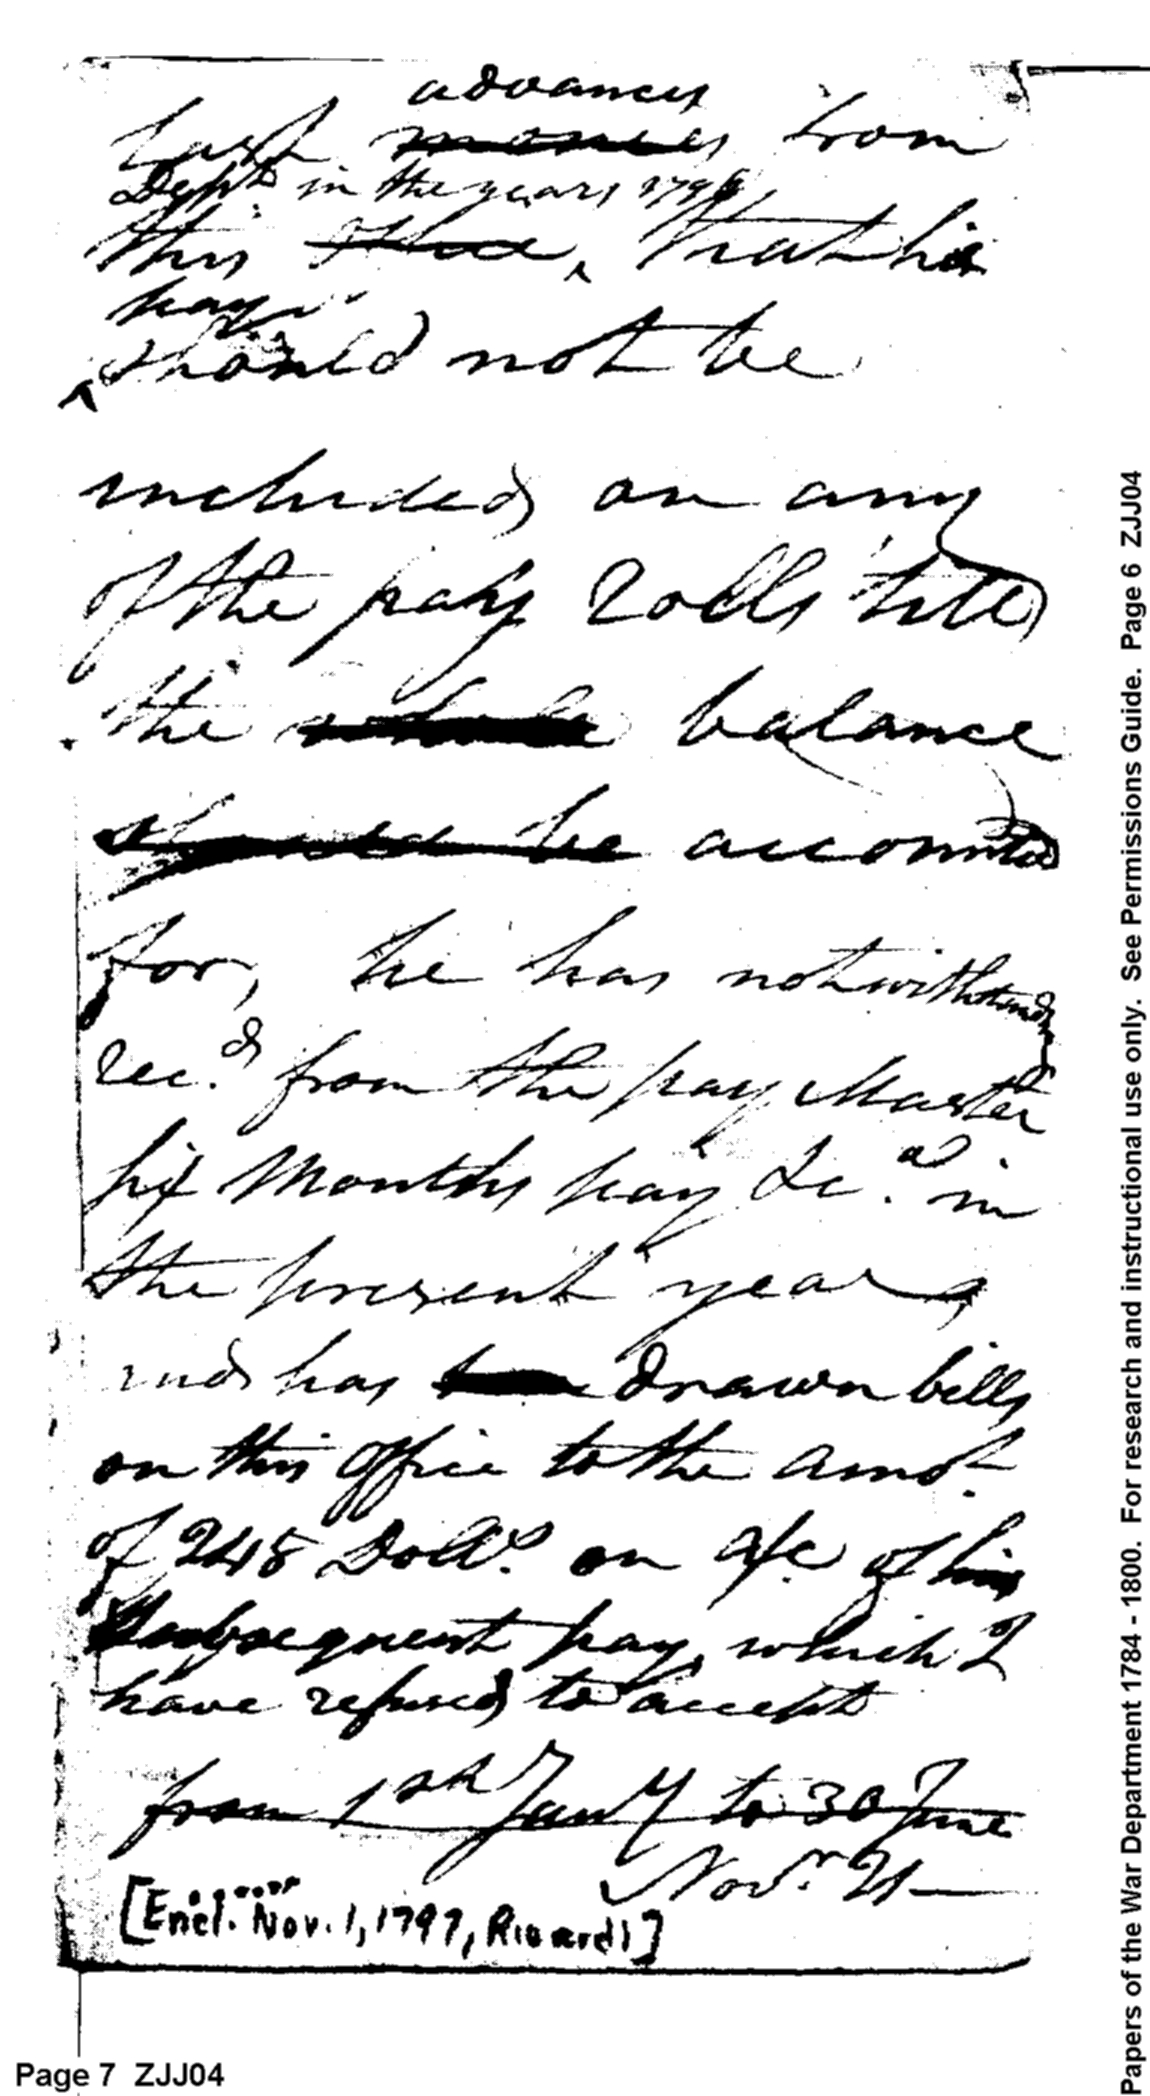 advances
last monies from
Dept in the years 1796
this Office, that his
pay
should not be
included on any
of the pay Rolls till
the whole balance
should be accounted
for, he has notwithstandg
Rec.d from the pay Master
six Months pay &c.a in
the present year,
and has drawn bills
on this Office to the amot.
of 248 Dolls. on a/c of his
subsequent pay, which I
have refused to accept
from 1st Jany to 30 June
Nov.r 21
[Encl. Nov. 1, 1797, Rivardi]
Page 7 ZJJ04
Papers of the War Department 1784 - 1800. For research and instructional use only. See Permissions Guide. Page 6 ZJJ04